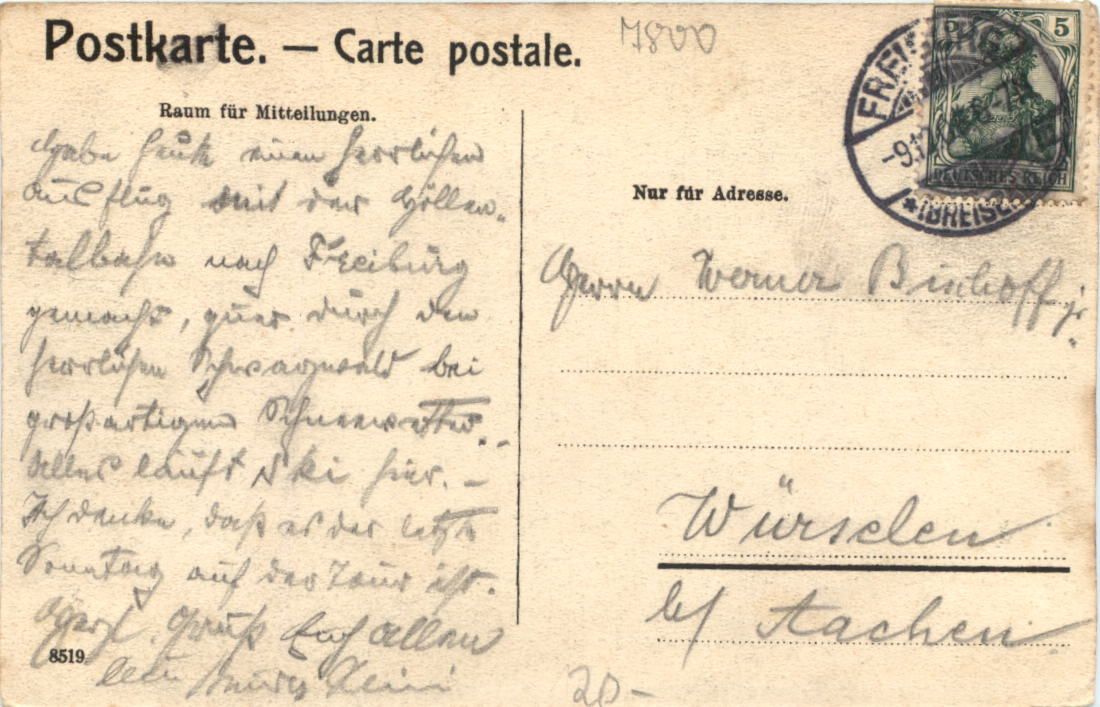 Postkarte. — Carte postale.
7800
Raum für Mitteilungen.
Habe heute einen herrlichen
Ausflug mit der Höllen-
talbahn nach Freiburg
gemacht, quer durch den
herrlichen Schwarzwald bei
großartigem Schneewetter. -
Alles läuft Ski hier. -
Ich denke, daß es der letzte
Sonntag auf der Tour ist.
Herzl. Gruß Euch allen
8519
Nur für Adresse.
Herrn Werner Bischoff jr.
Würselen
b/ Aachen
20-
5 5
DEUTSCHES REICH
FREIBURG
-9.1
* (BREISG.